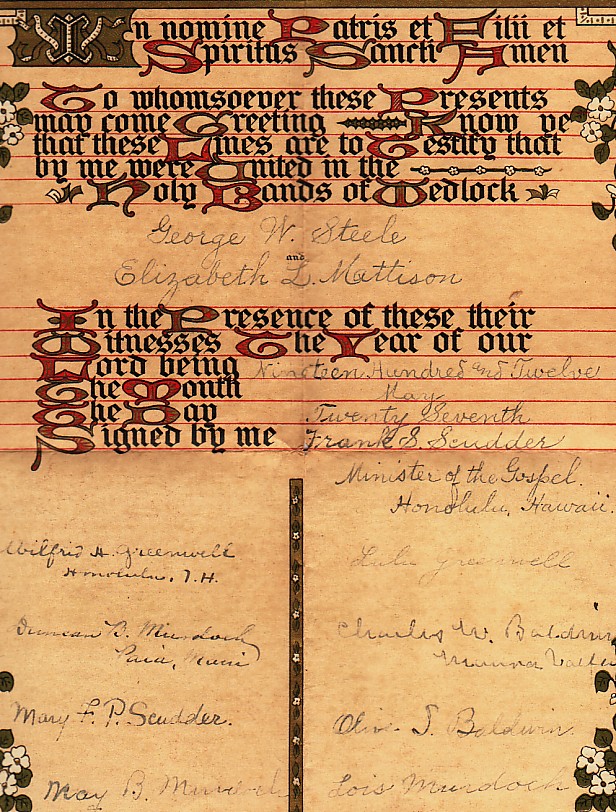 In nomine Patris et Filii et
Spiritus Sancti Amen
To whomsoever these Presents
may come Greeting Know ye
that these Lines are to Testify that
by me were United in the
Holy Bands of Wedlock
George W. Steele
and
Elizabeth L. Mattison
In the Presence of these their
Witnesses The Year of our
Lord being Nineteen Hundred and Twelve
The Month May
The Day Twenty Seventh
Signed by me Frank S. Scudder
Minister of the Gospel.
Honolulu, Hawaii.
Wilfrid A. Greenwell
Honolulu, T.H.
Lulu Greenwell
Duncan B. Murdoch
Paia, Maui
Charles W. Baldwin
Manoa
Mary F. P. Scudder.
Olive S. Baldwin.
May B. Murdoch
Lois Murdoch